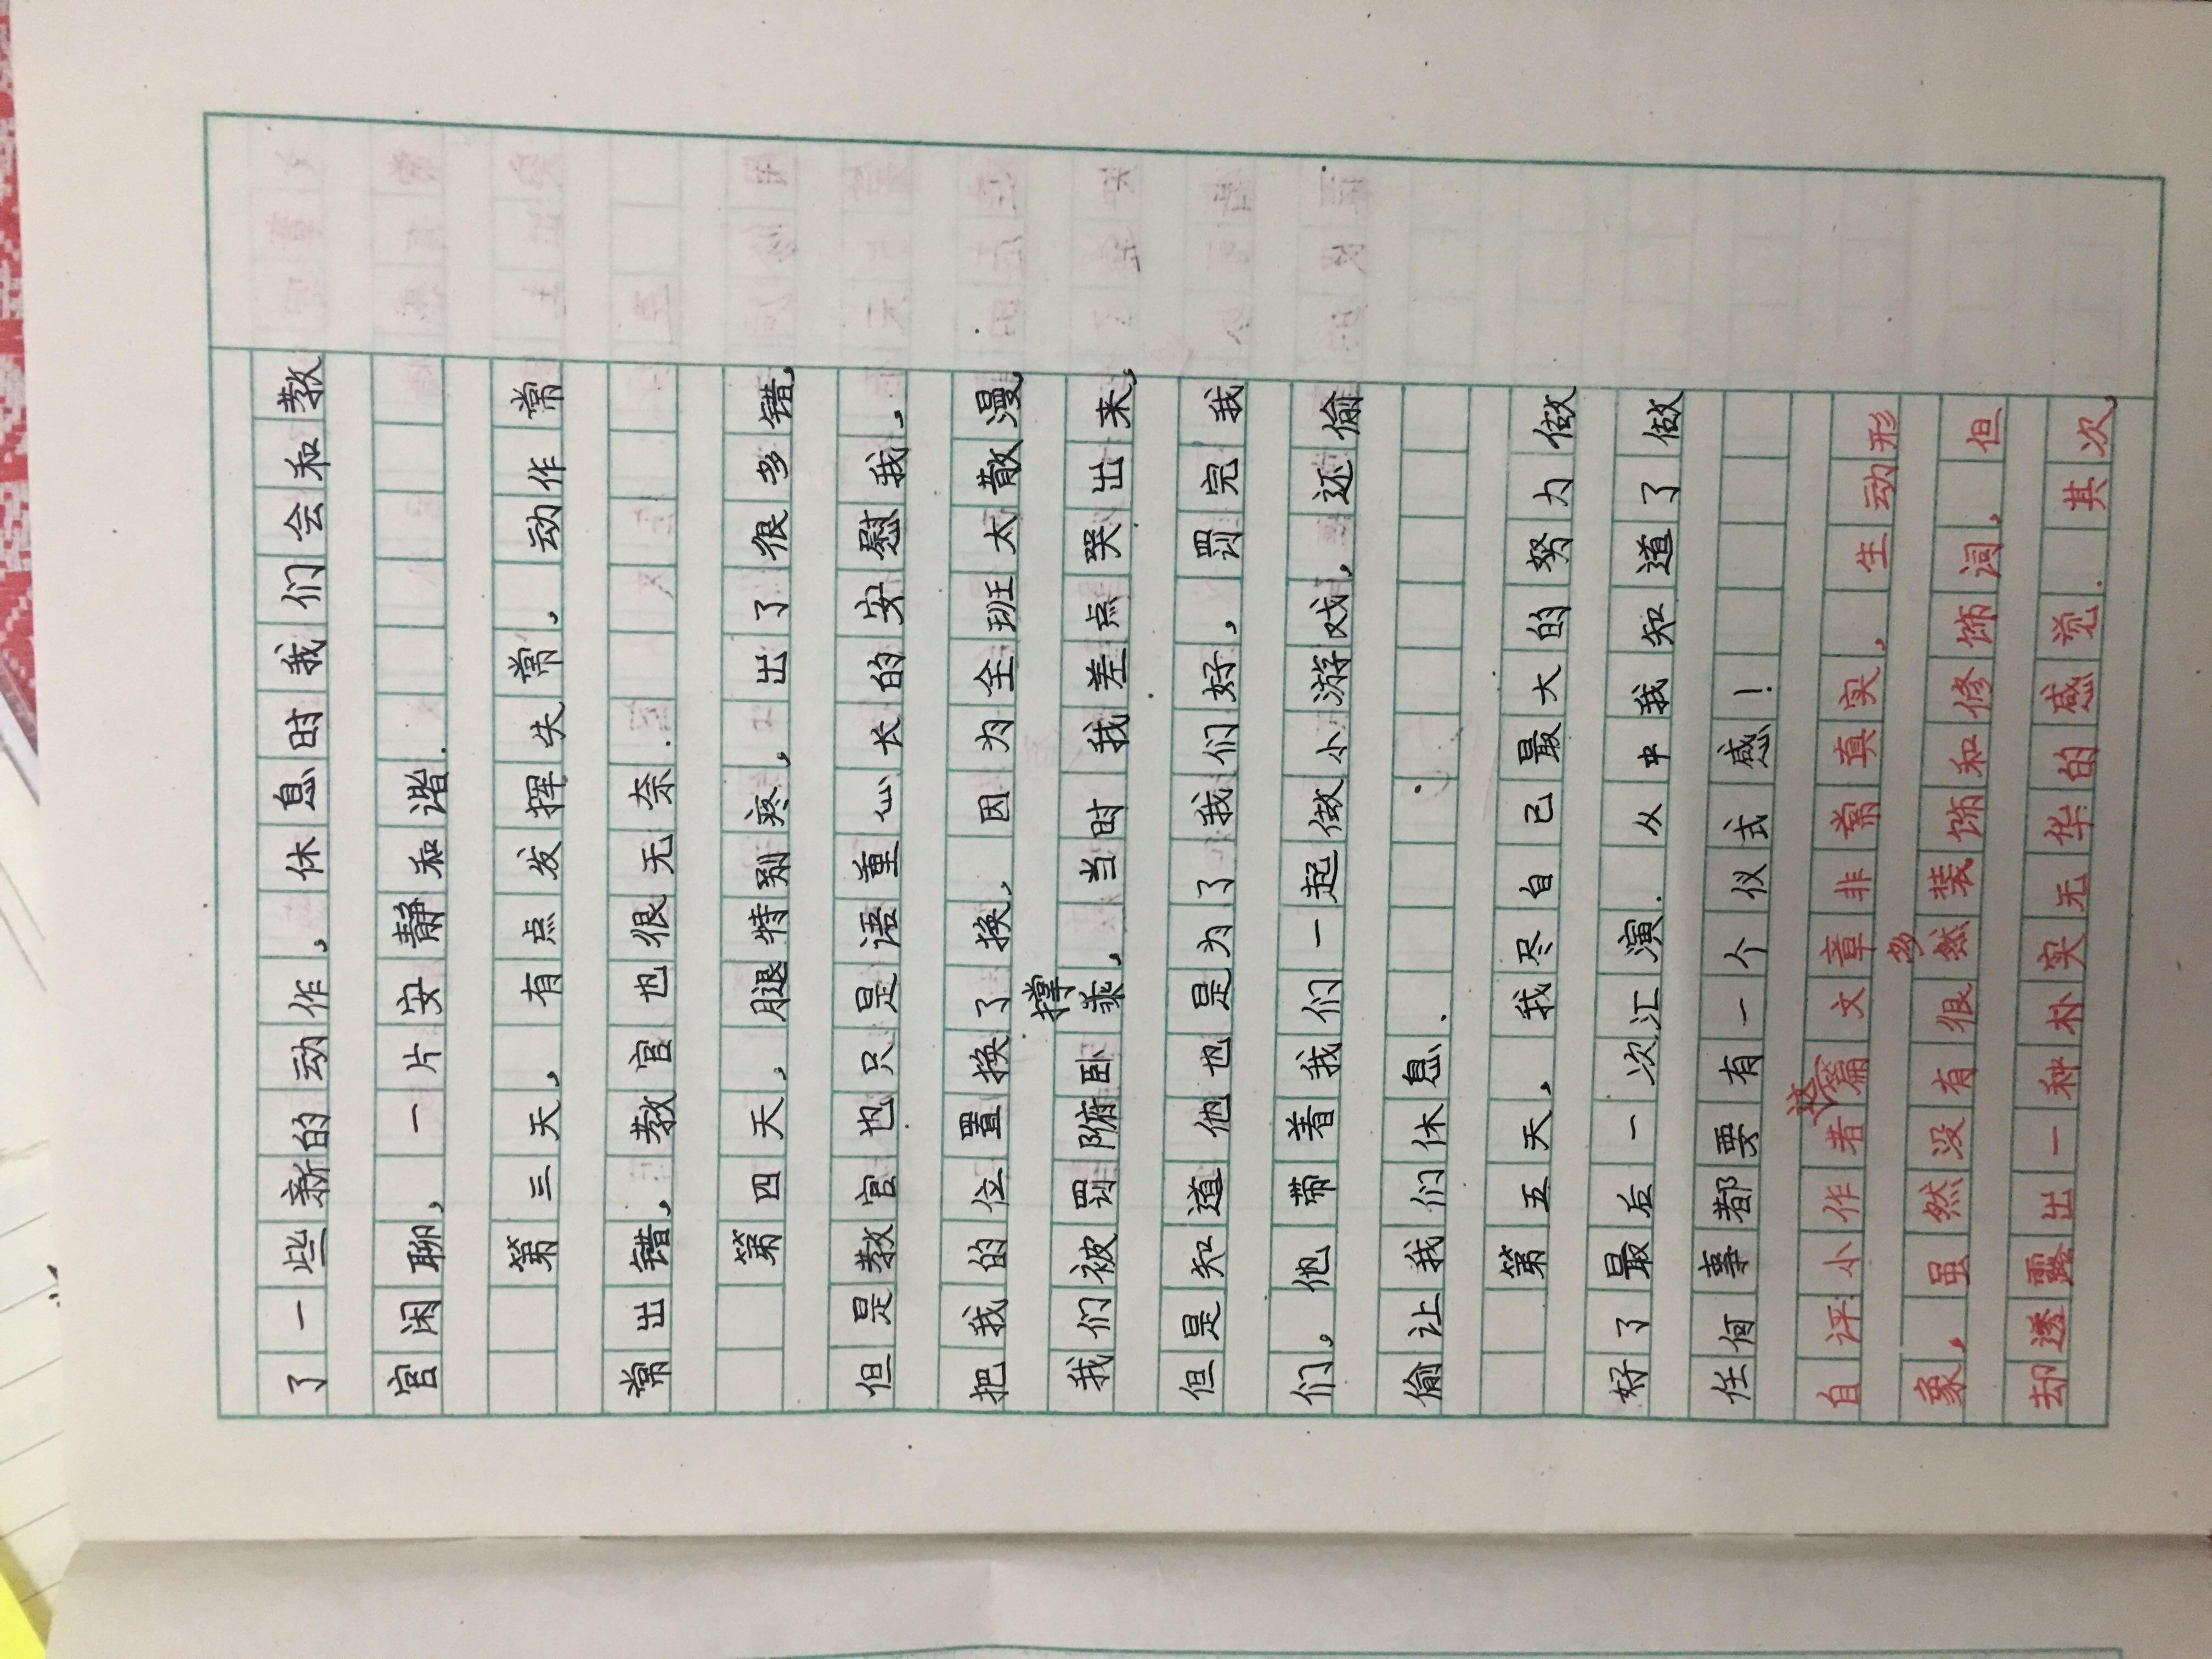 了一些新的动作，休息时我们会和教
官闲聊，一片安静和谐.
第三天，有点发挥失常，动作常
常出错，教官也很无奈.
第四天，腿特别疼，出了很多错，
但是教官也只是语重心长的安慰我，
把我的位置换了换，因为全班太散漫，
撑
我们被罚俯卧乘，当时我差点哭出来，
但是知道他也是为了我们好，罚完我
们，他带着我们一起做小游戏，还偷
偷让我们休息.
第五天，我尽自己最大的努力做
好了最后一次汇演.从中我知道了做
任何事都要有一个仪式感！
这
自评:小作者篇文章非常真实，生动形
多
象，虽然没有很然装饰和修饰词，但
却透露出一种朴实无华的感觉.其次，